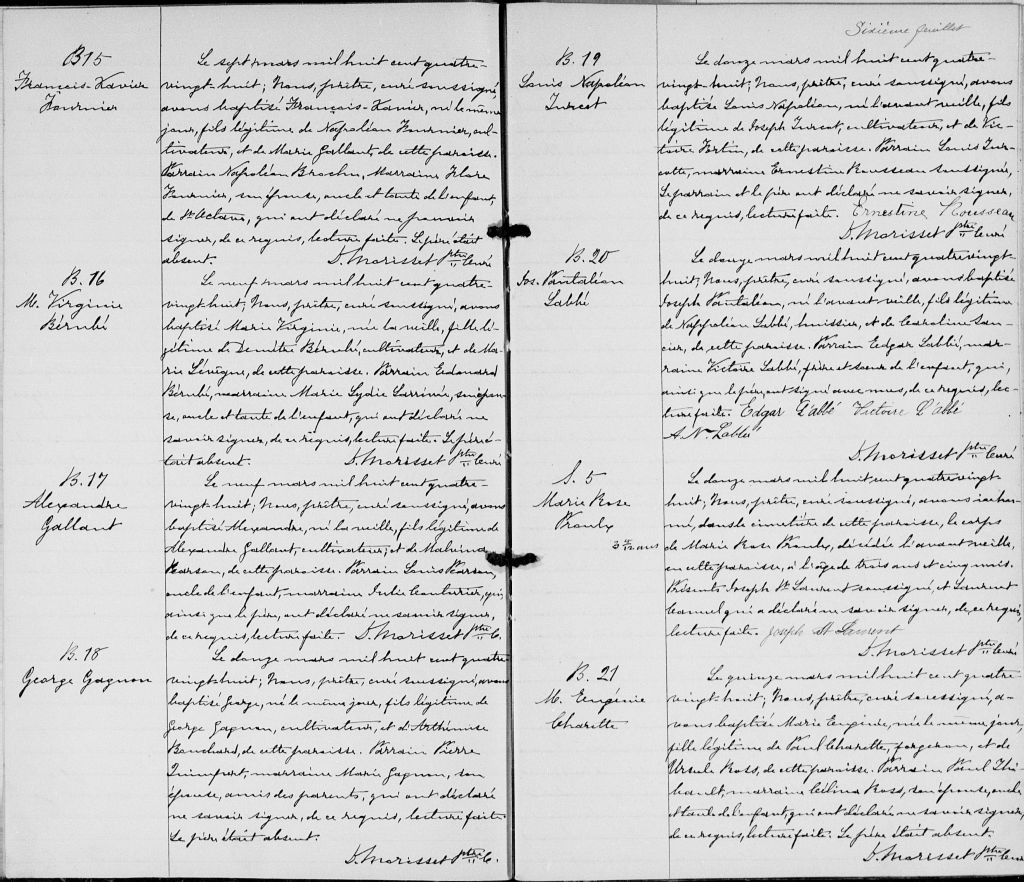 B15
François-Xavier
Fournier
Le sept mars mil huit cent quatre-
vingt-huit; Nous, prêtre, curé soussigné,
avons baptisé François-Xavier, né le même
jour, fils légitime de Napoléon Fournier, cul-
tivateur, et de Marie Gallant, de cette paroisse.
Parrain Napoléon Brochu, Marraine Flore
Fournier, son épouse, oncle et tante de l'enfant,
de St Octave, qui ont déclaré ne pouvoir
signer, de ce requis, lecture faite. Le père était
absent. D. Morisset Ptre Curé
B. 16
M. Virginie
Bérubé
Le neuf mars mil huit cent quatre-
vingt-huit; Nous, prêtre, curé soussigné, avons
baptisé Marie Virginie, née la veille, fille lé-
gitime de Demétre Bérubé, cultivateur, et de Ma-
rie Lévêque, de cette paroisse. Parrain Edouard
Bérubé, marraine Marie Lydie Larrivée, son épou-
se, oncle et tante de l'enfant, qui ont déclaré ne
savoir signer, de ce requis, lecture faite. Le père é-
tait absent. D. Morisset Ptre Curé
B. 17
Alexandre
Gallant
Le neuf mars mil huit cent quatre-
vingt-huit; Nous, prêtre, curé soussigné, avons
baptisé Alexandre, né la veille, fils légitime de
Alexandre Gallant, cultivateur, et de Malvina
Pearson, de cette paroisse. Parrain Louis Pearson,
oncle de l'enfant, marraine Julie Couturier, qui,
ainsi que le père, ont déclaré ne savoir signer,
de ce requis, lecture faite. D. Morisset Ptre C.
B. 18
George Gagnon
Le douze mars mil huit cent quatre-
vingt-huit; Nous, prêtre, curé soussigné, avons
baptisé George, né le même jour, fils légitime de
George Gagnon, cultivateur, et d'Arthémise
Bouchard, de cette paroisse. Parrain Pierre
Quimfort, marraine Marie Gagnon, son
épouse, amis des parents, qui ont déclaré
ne savoir signer, de ce requis, lecture faite.
Le père était absent.
D. Morisset Ptre C.
Sixième feuillet
B. 19
Louis Napoléon
Turcot
Le douze mars mil huit cent quatre-
vingt-huit; Nous, prêtre, curé soussigné, avons
baptisé Louis Napoléon, né l'avant veille, fils
légitime de Joseph Turcot, cultivateur, et de Vic-
toire Fortin, de cette paroisse. Parrain Louis Tur-
cotte, marraine Ernestine Rousseau soussignée,
Le parrain et le père ont déclaré ne savoir signer,
de ce requis, lecture faite. Ernestine Rousseau
D. Morisset Ptre Curé
B. 20
Jos. Pantaléon
Labbé
Le douze mars mil huit cent quatre vingt-
huit; Nous, prêtre, curé soussigné, avons baptisé
Joseph Pantaléon, né l'avant veille, fils légitime
de Napoléon Labbé, huissier, et de Caroline San-
cier, de cette paroisse. Parrain Edgar Labbé, mar-
raine Victoire Labbé, frère et soeur de l'enfant, qui,
ainsi que le père, ont signé avec nous, de ce requis, lec-
ture faite. Edgar L'abbé Victoire L'abbé
A. N. Labbé
D. Morisset Ptre Curé
S. 5
Marie Rose
Proulx
3 5/12 ans
Le douze mars mil huit cent quatre vingt-
huit, Nous, prêtre, curé soussigné, avons inhu-
mé, dans le cimetière de cette paroisse, le corps
de Marie Rose Proulx, décédée l'avant veille,
en cette paroisse, à l'age de trois ans et cinq mois.
Présents Joseph St Laurent soussigné, et Laurent
Canuel qui a déclaré ne savoir signer, de ce requis,
lecture faite. Joseph St Laurent
D. Morisset Ptre Curé
B. 21
M. Eugénie
Charette
Le quinze mars mil huit cent quatre-
vingt-huit; Nous, prêtre, curé soussigné, a-
vons baptisé Marie Eugénie, née le même jour,
fille légitime de Paul Charette, forgeron, et de
Ursule Ross, de cette paroisse. Parrain Paul Thi-
bault, marraine Célina Ross, son épouse, oncle
et tante de l'enfant, qui ont déclaré ne savoir signer,
de ce requis, lecture faite. Le père était absent.
D. Morisset Ptre Curé